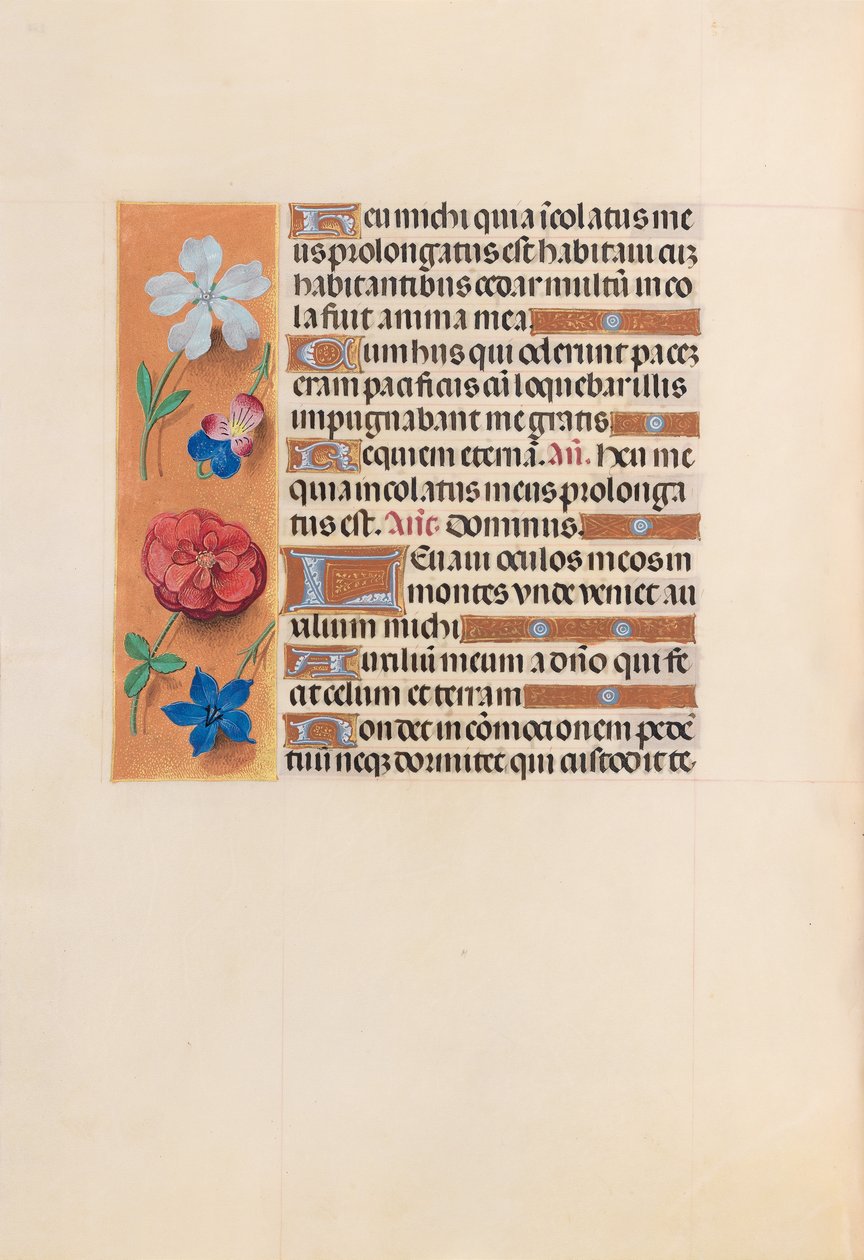 Heu michi quia īcolatus me
us prolongatus est habitaui cuȝ
habitantibus cedar multū inco
la fuit anima mea.
Cum hiis qui oderunt paceȝ
eram pacificus cū loquebar illis
impugnabant me gratis.
Requiem eternā. Añ. Heu me
quia incolatus meus prolonga
tus est. Añt. Dominus.
Leuaui oculos meos in
montes vnde veniet au
xilium michi
Auxiliū meum a dño qui fe
cit celum et terram
Non det in cōmocionem pedē
tuū neqȝ dormitet qui custodit te.